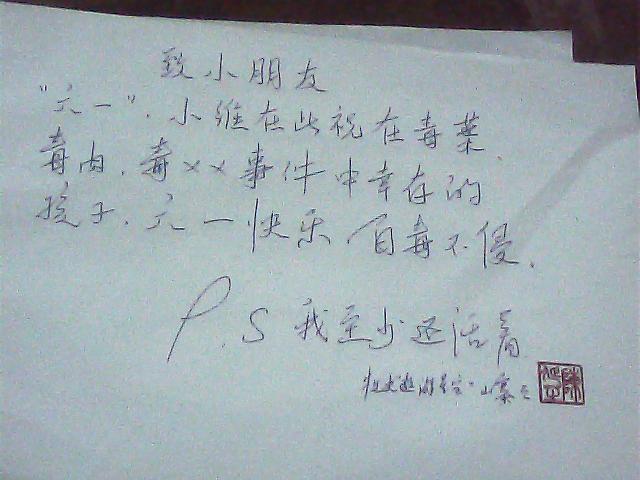 致小朋友
"六一"，小维在此祝在毒菜
毒肉，毒××事件中幸存的
孩子，六一快乐，百毒不侵．
P.S 我至少还活着